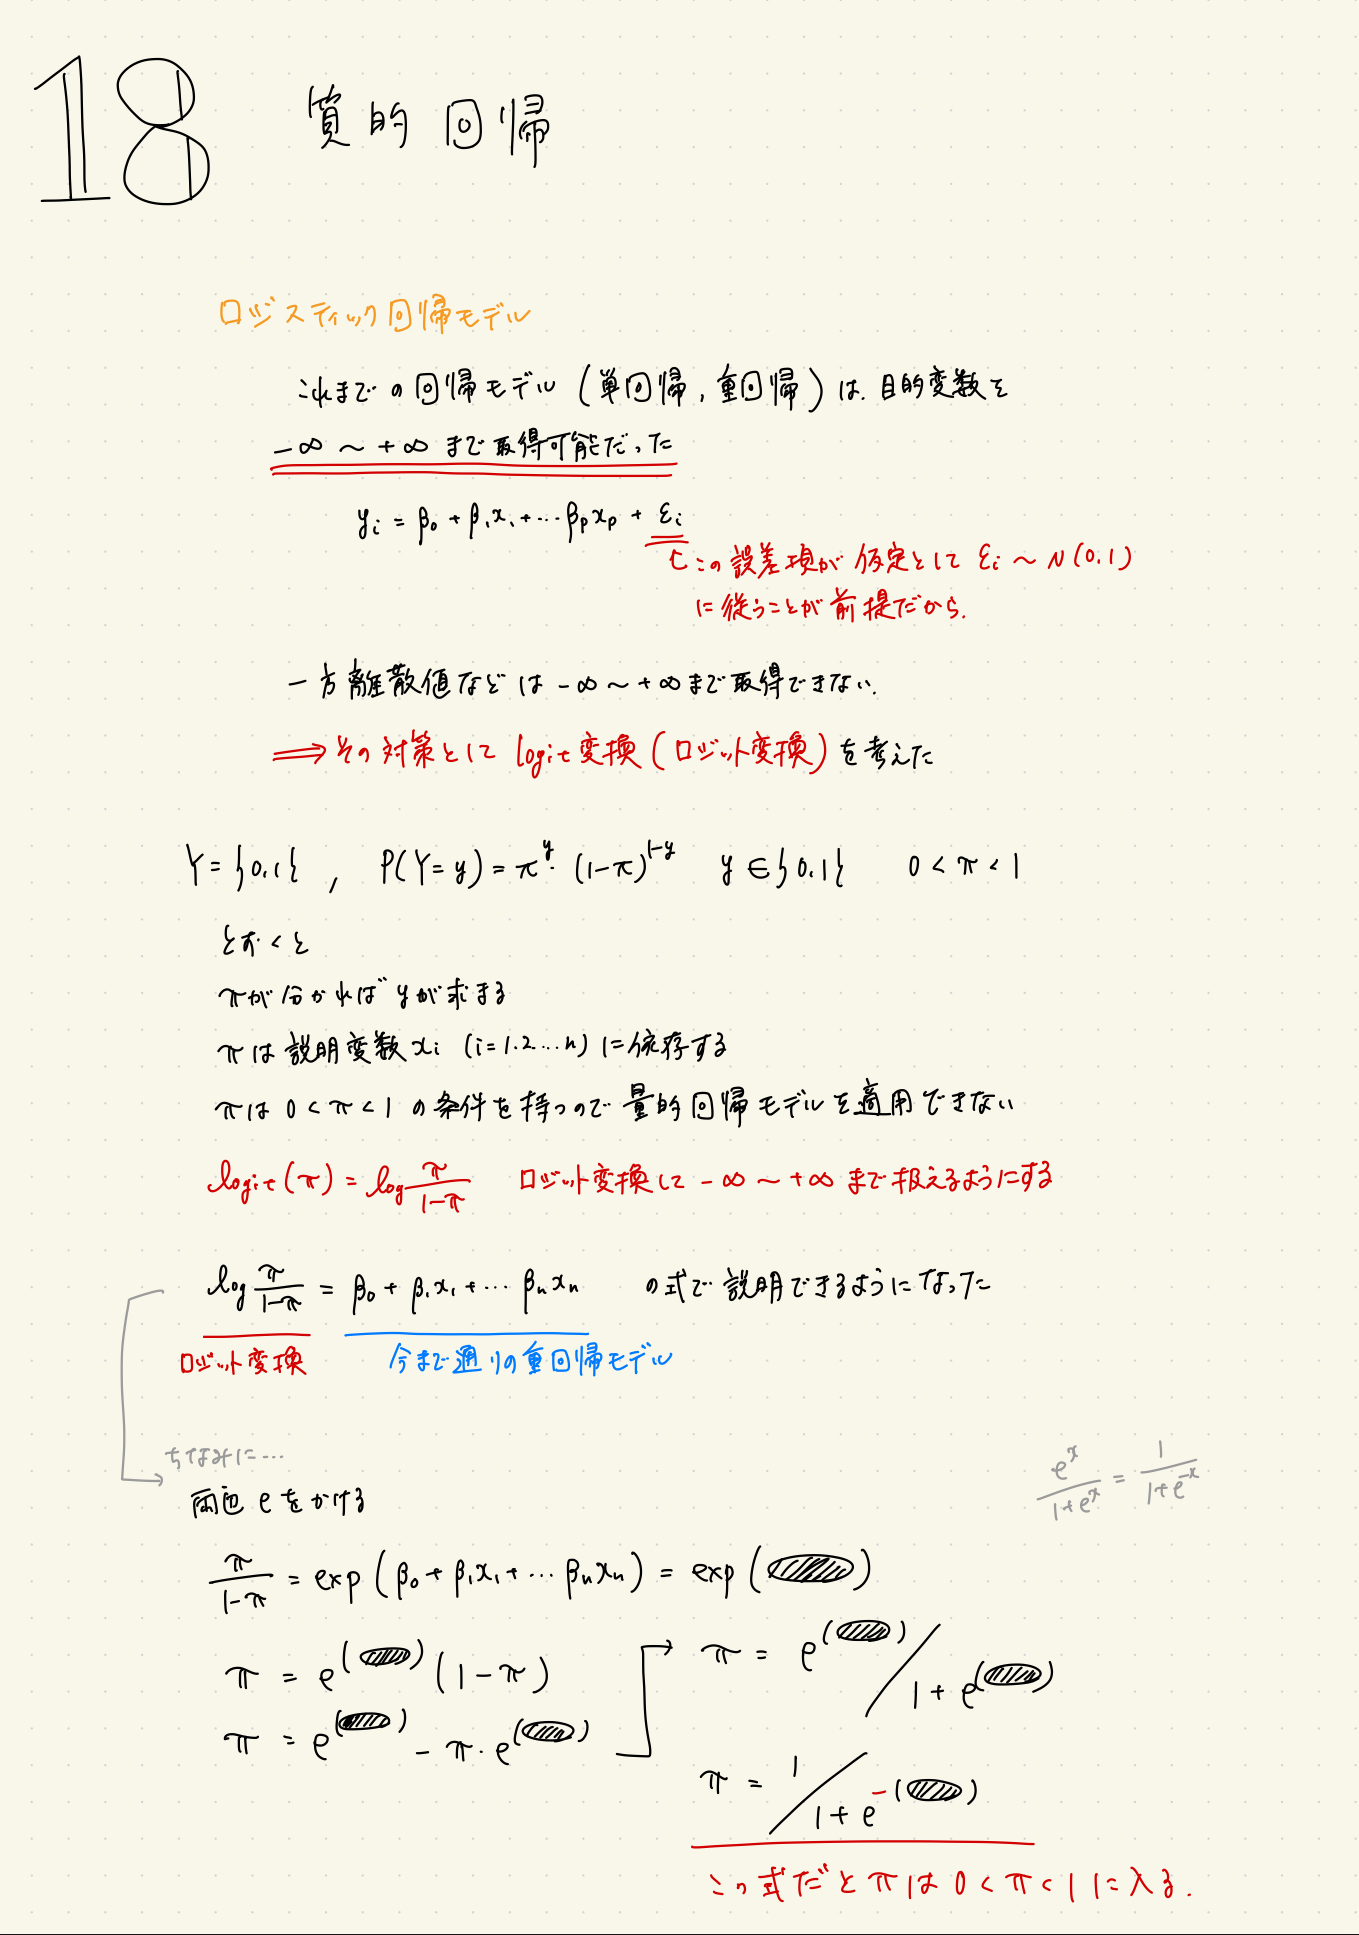 18 質的回帰
ロジスティック回帰モデル
これまでの回帰モデル (単回帰, 重回帰) は、目的変数を
-∞ ~ +∞ まで取得可能だった
yi = β0 + β1x1 + … βpxp + εi
↑この誤差項が仮定として εi ~ N(0.1)
に従うことが前提だから.
一方離散値などは -∞ ~ +∞まで取得できない.
⟹ その対策として logit変換 (ロジット変換) を考えた
Y = {0.1} , P(Y=y) = π^y・(1-π)^1-y y ∈ {0.1} 0 < π < 1
とおくと
πが分かればyが求まる
πは説明変数xi (i=1.2…n)に依存する
πは 0<π<1 の条件を持つので量的回帰モデルを適用できない
logit(π) = log π/1-π ロジット変換して -∞ ~ +∞ まで扱えるようにする
log π/1-π = β0 + β1x1 + … βnxn の式で説明できるようになった
ロジット変換 今まで通りの重回帰モデル
ちなみに…
e^x/1+e^x = 1/1+e^-x
両辺 eをかける
π/1-π = exp(β0+β1x1+…βnxn) = exp( )
π = e^( ) (1-π)
π = e^( ) - π・e^( )
π = e^( ) / 1+e^( )
π = 1 / 1+e^-( )
この式だとπは0<π<1に入る.